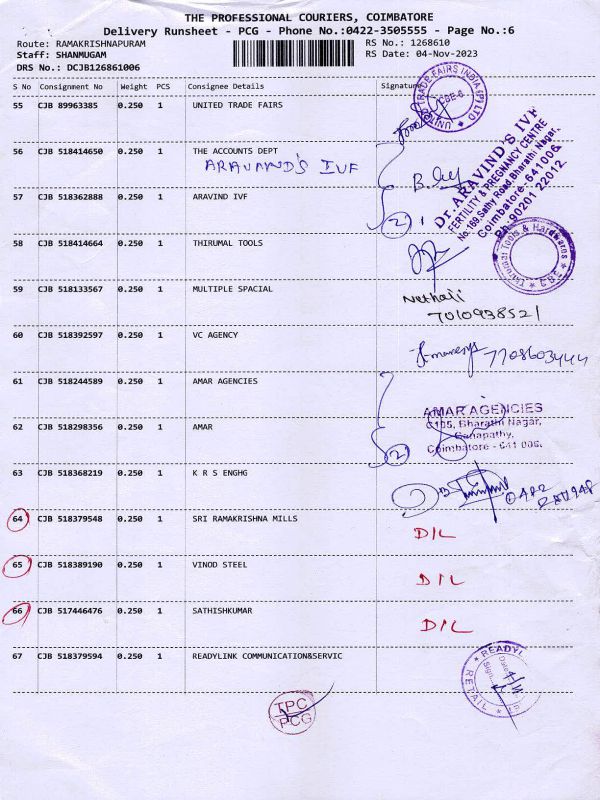 THE PROFESSIONAL COURIERS, COIMBATORE
Delivery Runsheet - PCG - Phone No.:0422-3505555 - Page No.:6
Route: RAMAKRISHNAPURAM RS No.: 1268610
Staff: SHANMUGAM RS Date: 04-Nov-2023
DRS No.: DCJB126861006
S No Consignment No Weight PCS Consignee Details Signature
55 CJB 89963385 0.250 1 UNITED TRADE FAIRS
UNITED TRADE FAIRS INDIA (P) LTD
CBE-6
56 CJB 518414650 0.250 1 THE ACCOUNTS DEPT
ARAVAND'S IVF
57 CJB 518362888 0.250 1 ARAVIND IVF
2
Dr. ARAVIND'S IVF
FERTILITY & PREGNANCY CENTRE
No.169, Sathy Road, Bharathi Nagar,
Coimbatore-641006.
Ph: 90201 22012
58 CJB 518414664 0.250 1 THIRUMAL TOOLS
Thirumal Tools & Hardwares
59 CJB 518133567 0.250 1 MULTIPLE SPACIAL
Nethaji
7010938521
60 CJB 518392597 0.250 1 VC AGENCY
7708603444
61 CJB 518244589 0.250 1 AMAR AGENCIES
AMAR AGENCIES
C105, Bharathi Nagar,
Ganapathy,
Coimbatore - 641 006.
62 CJB 518298356 0.250 1 AMAR
2
63 CJB 518368219 0.250 1 K R S ENGHG
64 CJB 518379548 0.250 1 SRI RAMAKRISHNA MILLS D/L
65 CJB 518389190 0.250 1 VINOD STEEL D/L
66 CJB 517446476 0.250 1 SATHISHKUMAR D/L
67 CJB 518379594 0.250 1 READYLINK COMMUNICATION&SERVIC
READYL
RETAIL
Sign
Date
TPC
PCG